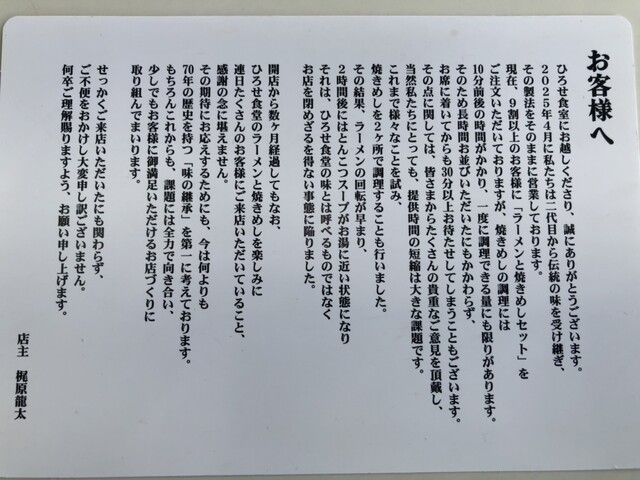 お客様へ
ひろせ食堂にお越しくださり、誠にありがとうございます。
2025年4月に私たちは二代目から伝統の味を受け継ぎ、
その製法をそのままに営業しております。
現在、9割以上のお客様に「ラーメンと焼きめしセット」を
ご注文いただいておりますが、焼きめしの調理には
10分前後の時間がかかり、一度に調理できる量にも限りがあります。
そのため長時間お並びいただいたにもかかわらず、
お席に着いてからも30分以上お待たせしてしまうこともございます。
その点に関しては、皆さまからたくさんの貴重なご意見を頂戴し、
当然私たちにとっても、提供時間の短縮は大きな課題です。
これまで様々なことを試み、
焼きめしを2ヶ所で調理することも行いました。
その結果、ラーメンの回転が早まり、
2時間後にはとんこつスープがお湯に近い状態になり
それは、ひろせ食堂の味とは呼べるものではなく
お店を閉めざるを得ない事態に陥りました。
開店から数ヶ月経過してもなお、
ひろせ食堂のラーメンと焼きめしを楽しみに
連日たくさんのお客様にご来店いただいていること、
感謝の念に堪えません。
その期待にお応えするためにも、今は何よりも
70年の歴史を持つ「味の継承」を第一に考えております。
もちろんこれからも、課題には全力で向き合い、
少しでもお客様に御満足いただけるお店づくりに
取り組んでまいります。
せっかくご来店いただいたにも関わらず、
ご不便をおかけし大変申し訳ございません。
何卒ご理解賜りますよう、お願い申し上げます。
店主 梶原龍太